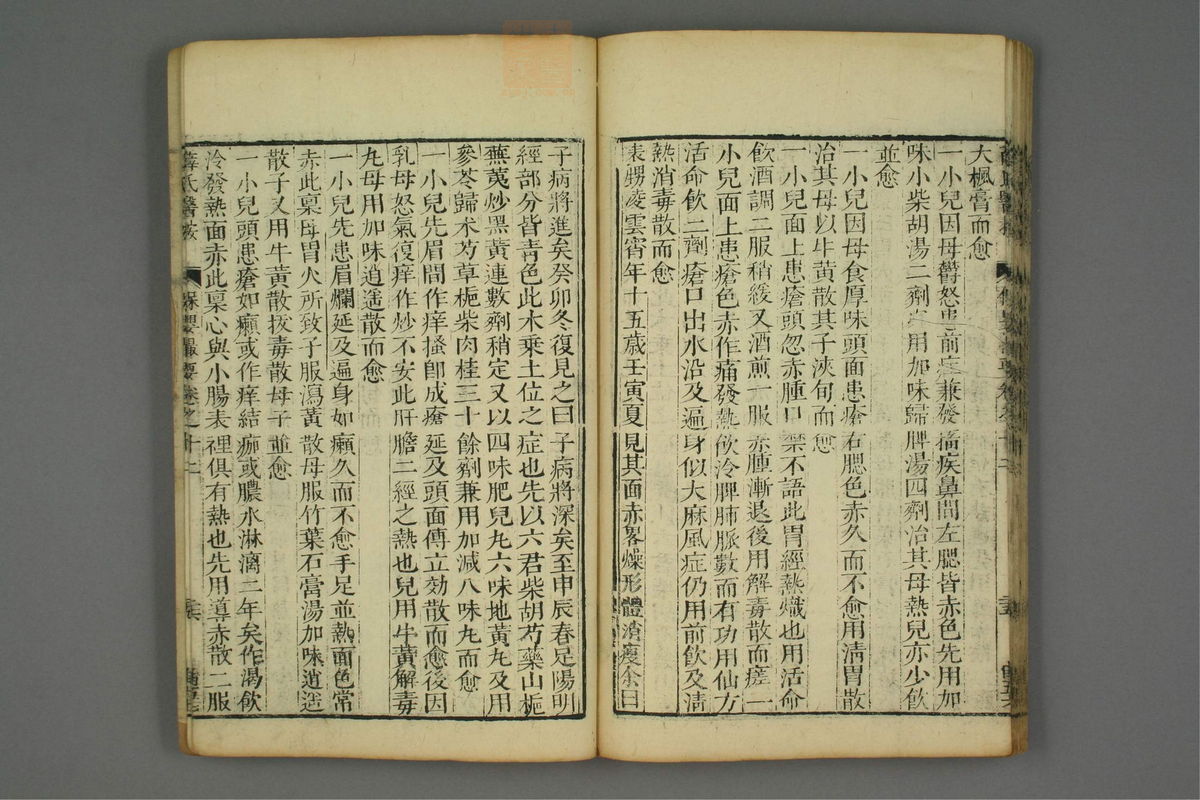 大楓膏而愈
一小兒因母鬱怒患前症兼發搐疾鼻間左腮皆赤色先用加
味小柴胡湯二劑次用加味歸脾湯四劑治其母熱兒亦少飲
並愈
一小兒因母食厚味頭面患瘡右腮色赤久而不愈用淸胃散
治其母以牛黃散其子浹旬而愈
一小兒面上患瘡頭忽赤腫口噤不語此胃經熱熾也用活命
飲酒調二服稍緩又酒煎一服赤腫漸退後用解毒散而瘥一
小兒面上患瘡色赤作痛發熱欲冷脾肺脈數而有功用仙方
活命飲二劑瘡口出水沿及遍身似大麻風症仍用前飲及淸
熱消毒散而愈
表甥凌雲霄年十五歲壬寅夏見其面赤畧燥形體消瘦余曰
子病將進矣癸卯冬復見之曰子病將深矣至申辰春足陽明
經部分皆靑色此木乘土位之症也先以六君柴胡芍藥山梔
蕪荑炒黑黃連數劑稍定又以四味肥兒丸六味地黃丸及用
參苓歸术芍草梔柴肉桂三十餘劑兼用加減八味丸而愈
一小兒先眉間作痒搔卽成瘡延及頭面傅立効散而愈後因
乳母怒氣復痒作炒不安此肝膽二經之熱也兒用牛黃解毒
丸母用加味逍遙散而愈
一小兒先患眉爛延及遍身如癩久而不愈手足並熱面色常
赤此稟母胃火所致子服瀉黃散母服竹葉石膏湯加味逍遥
散子又用牛黃散拔毒散母子並愈
一小兒頭患瘡如癩或作痒結痂或膿水淋漓二年矣作渴飲
冷發熱面赤此稟心與小腸表裡俱有熱也先用導赤散二服
薛氏醫案 保嬰撮要卷之十二